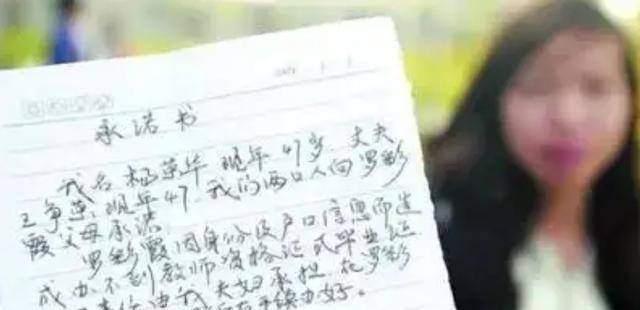 承诺书
我名杨荣华 现年47岁 丈夫
王争英 现年47. 我们两口人向罗彩
霞父母承诺:
罗彩霞因身份及户口信息而造
成办不到教师资格证或毕业证
由我夫妇承担. 在罗彩
手续办好。